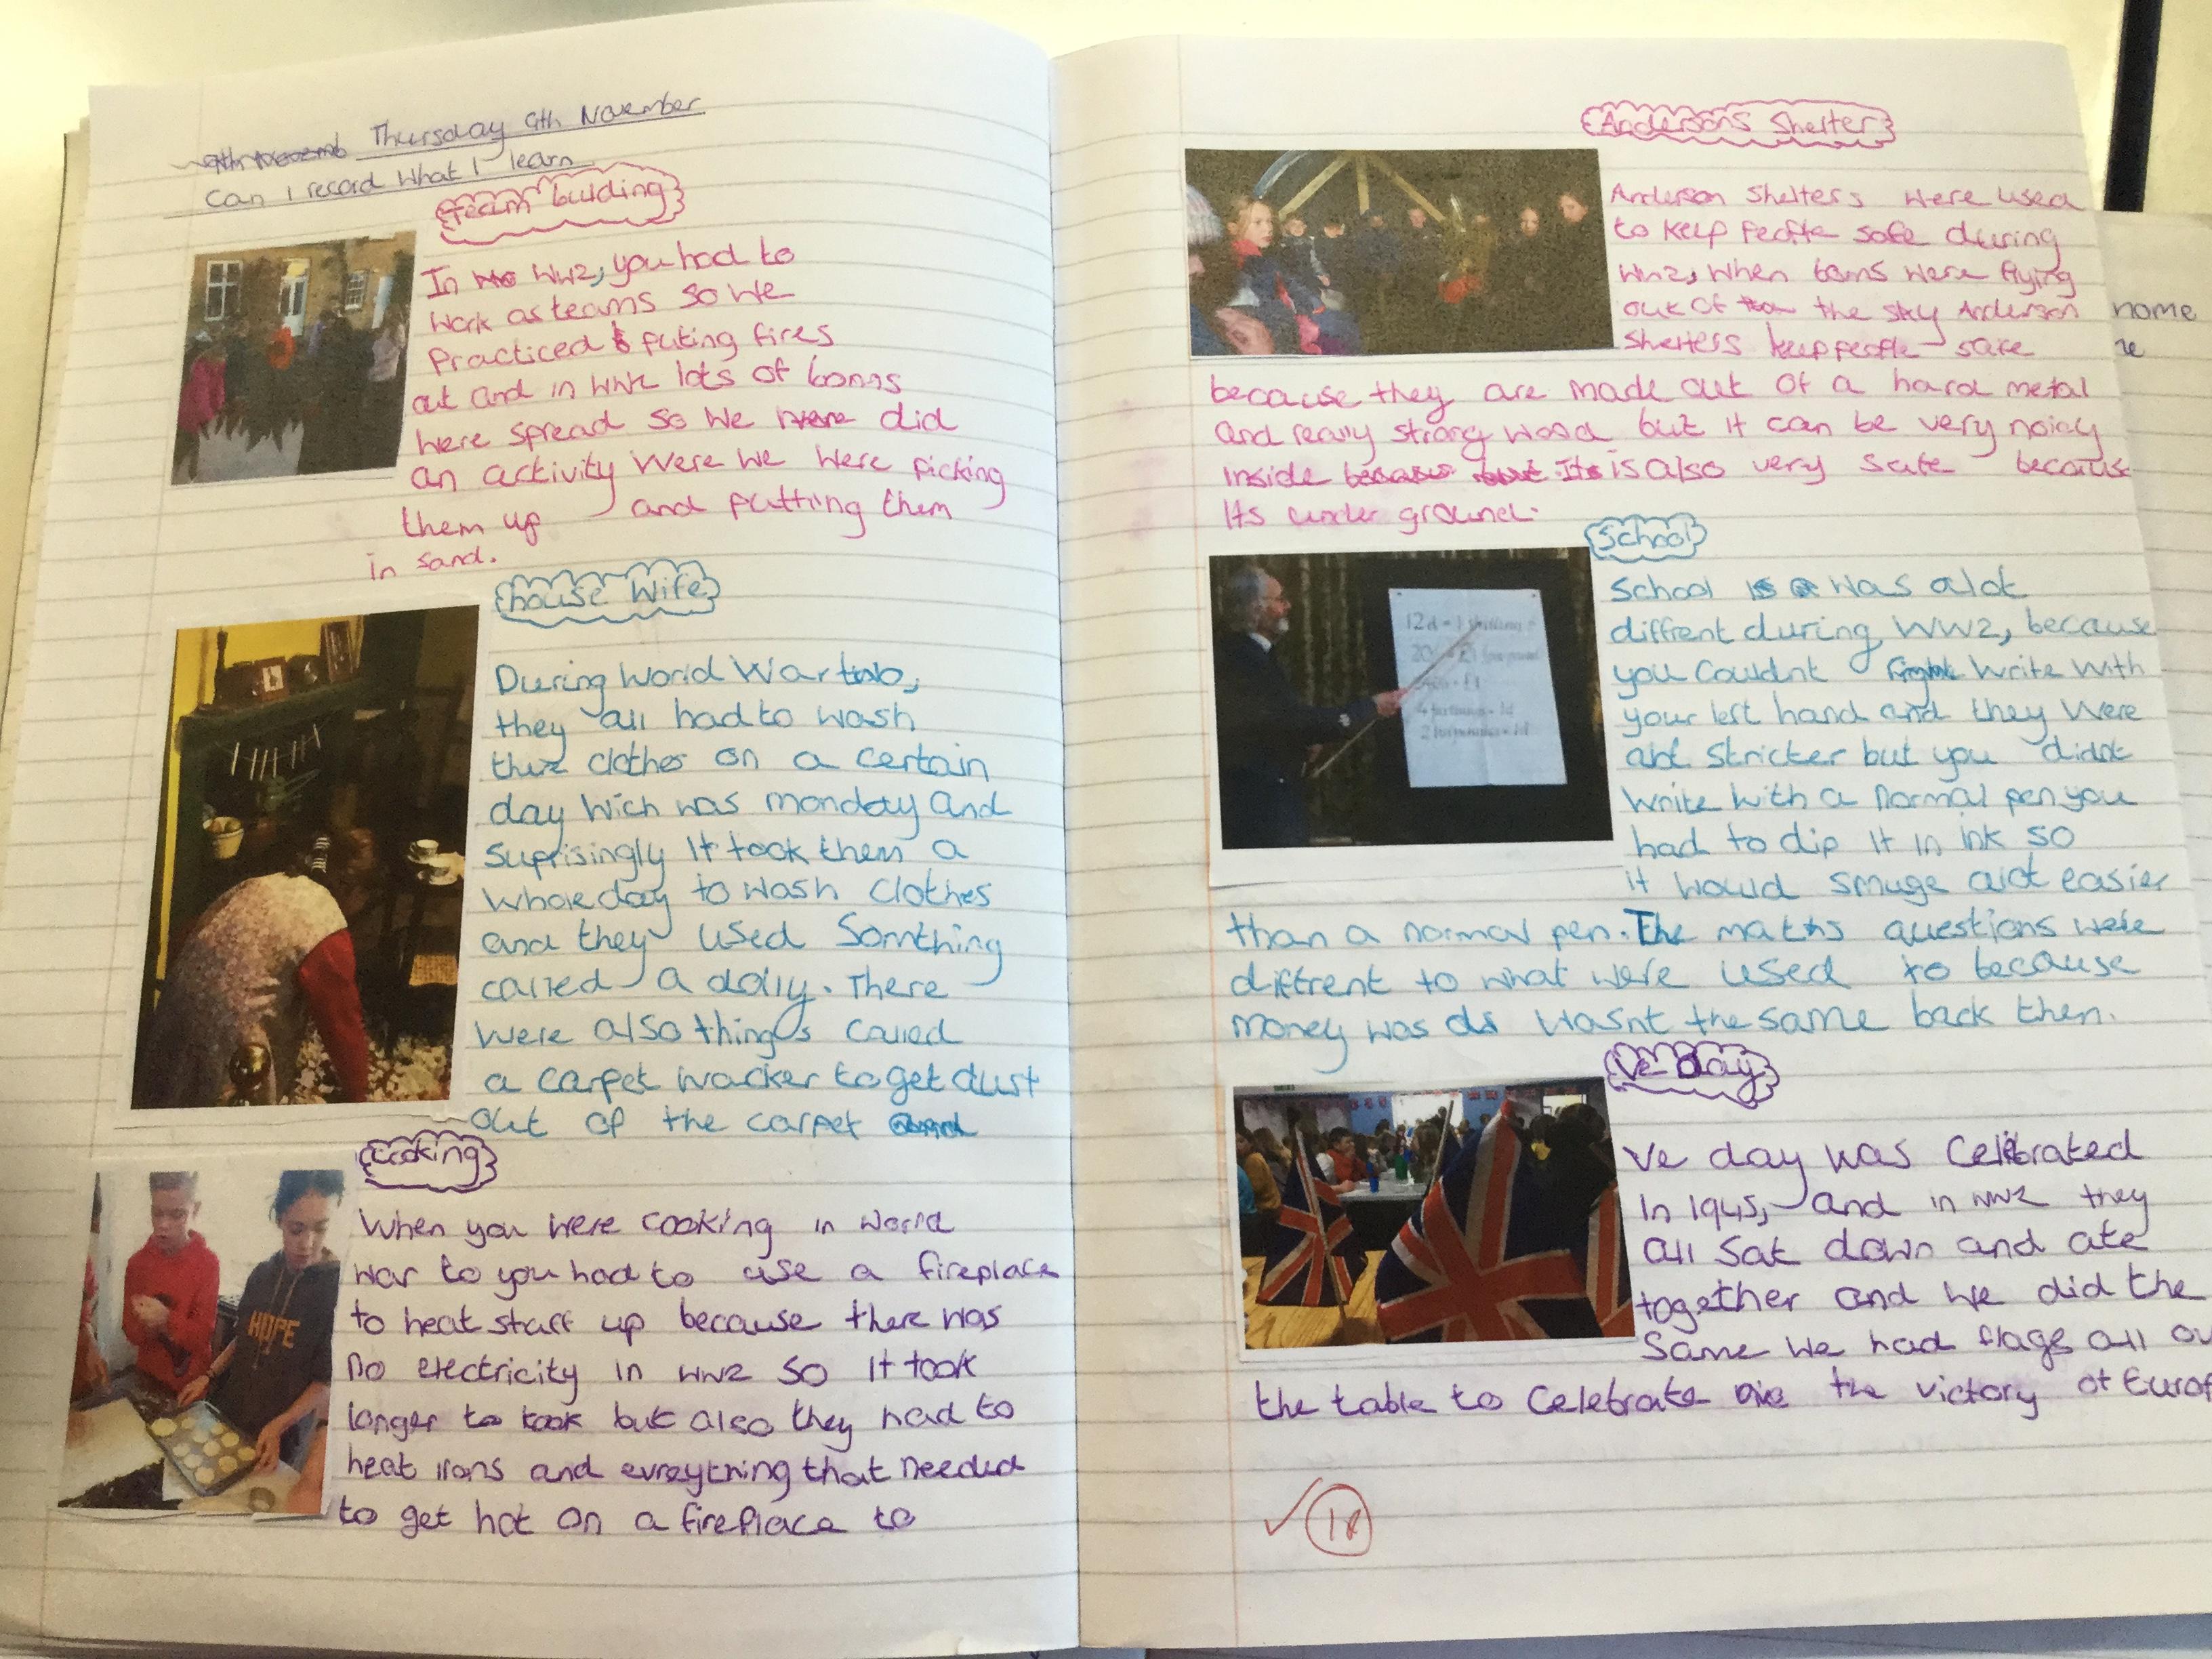 Thursday 9th November
Can I record what I learn
team building
In WW2, you had to
work as teams so we
Practiced puting fires
out and in WW2 lots of boms
were spread so we did
an activity were we were picking
them up and putting them
in sand.
house wife
During World War two,
they all had to wash
clothes on a certain
day wich was monday and
suprisingly it took them a
whole day to wash clothes
and they used Somthing
called a dolly. There
were also things called
a carpet wacker to get dust
out of the carpet
Cooking
When you were cooking in World
war to you had to use a fireplace
to heat stuff up because there was
no electricity in WW2 so it took
longer but also they had to
heat irons and evreything that needed
to get hot on a fireplace to
Andersons Shelter
Anderson Shelters were used
to keep people safe during
WW2, when boms were flying
out of the sky Anderson
Shelters keep people safe
because they are made out of a hard metal
and really strong wood but it can be very noicy
inside is also very safe because
its under ground.
School
School was alot
diffrent during WW2, because
you Couldnt write with
your left hand and they were
alot stricter but you didnt
write with a normal pen you
had to dip it in ink so
it would smuge alot easier
than a normal pen. The maths questions were
diffrent to what were used to because
money was wasnt the same back then.
Ve Day
Ve day was Celebrated
in 1945, and in WW2 they
all sat down and ate
together and we did the
Same we had flags all ov
the table to celebrate the victory of Europ
12d = 1 shilling
nome